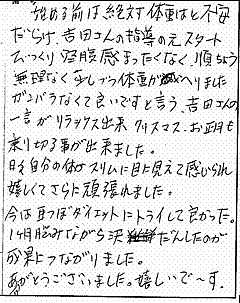 始める前は絶対体重はと不安
だらけ、吉田さんの指導の元スタート
びっくり 空腹感まったくなく、順ちょう
無理なく少しづつ体重がへりました
ガンバラなくて良いですと言う、吉田さんの
一言がリラックス出来 クリスマス、お正月も
乗り切る事が出来ました。
日々自分の体がスリムに目に見えて感じられ
嬉しくてさらに頑張れました。
今は耳つぼダイエットにトライして良かった。
1ヶ月悩みながら決だんしたのが
成果につながりました。
ありがとうございました。嬉しいで〜す。